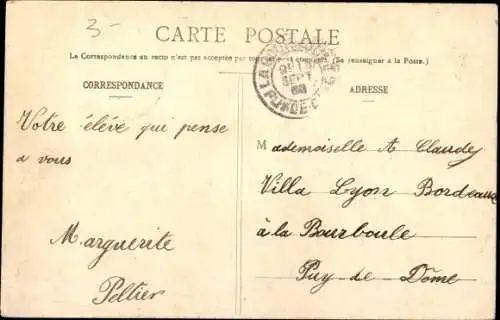 3-
CARTE POSTALE
La Correspondance au recto n'est pas acceptée par tous (Se renseigner à la Poste.)
CORRESPONDANCE
ADRESSE
Votre élève qui pense
a vous
Marguerite
Pellier
Mademoiselle A Claudey
Villa Lyon Bordeaux
à la Bourboule
Puy-de-Dôme
SEPT
PUY-DE-DOME